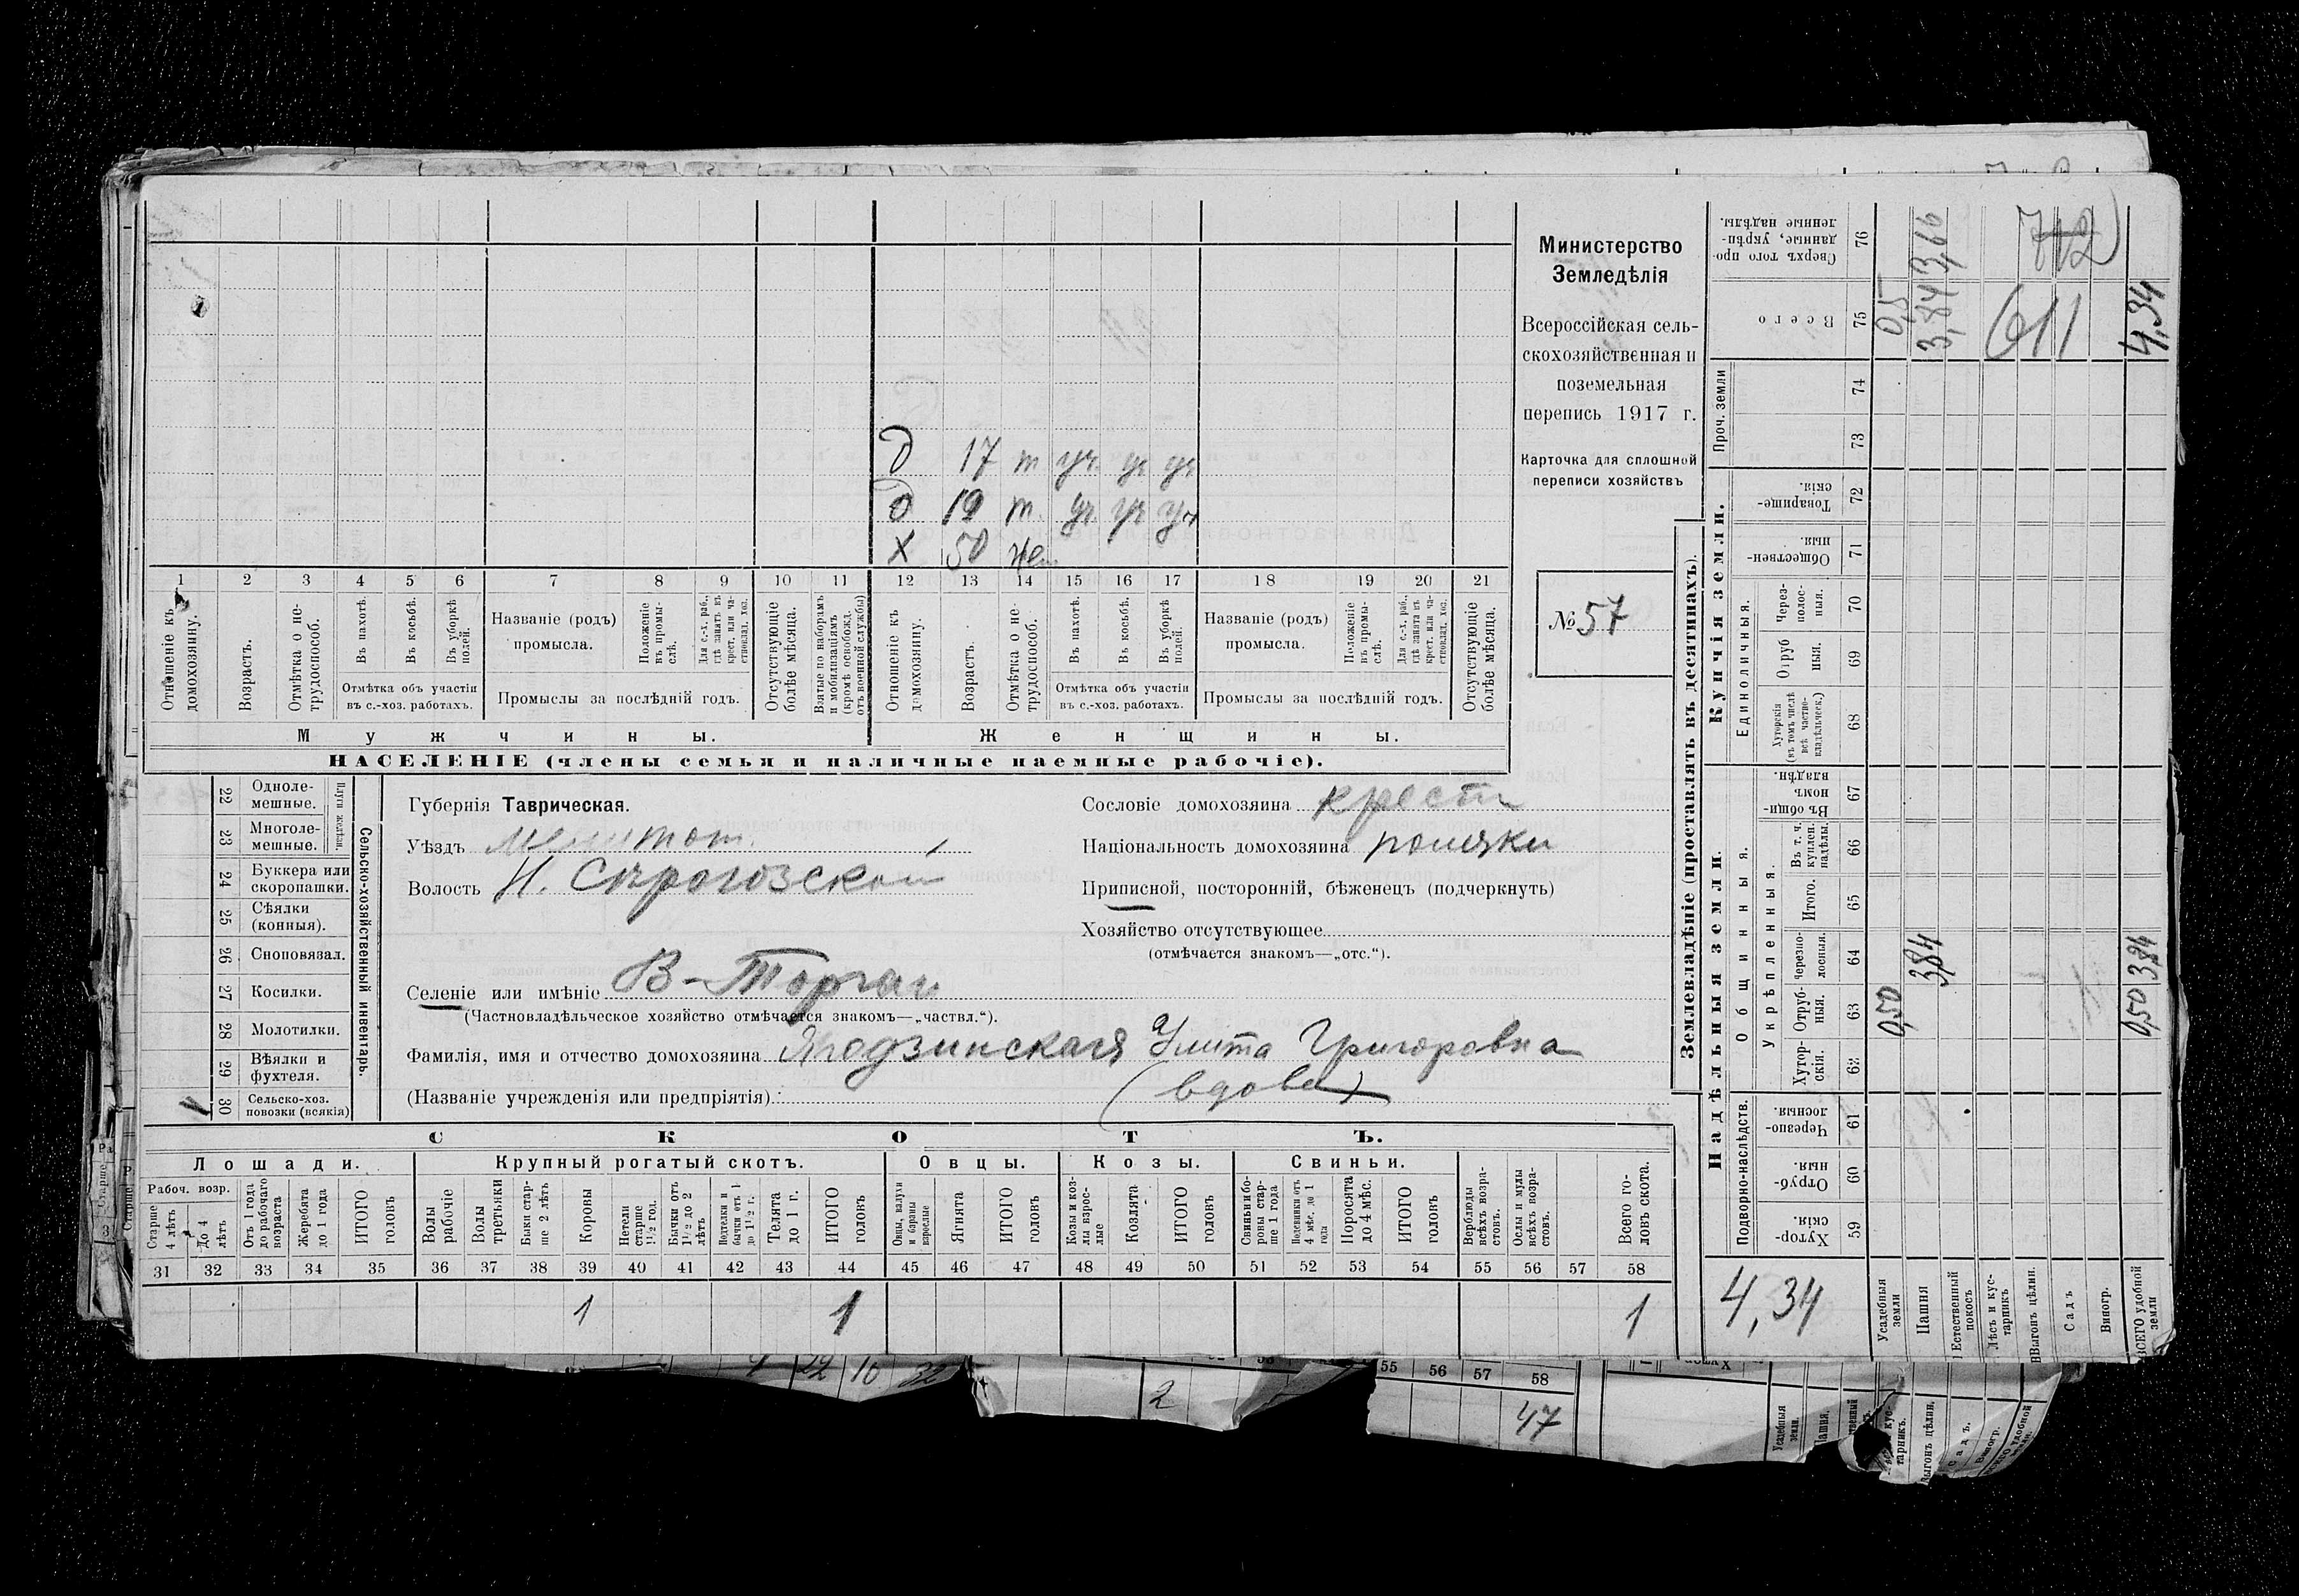 Министерство
Земледѣлія
Всероссійская сель-
скохозяйственная и
поземельная
перепись 1917 г.
Карточка для сплошной
переписи хозяйствъ
№ 57
д 17 т уч уч уч
д 19 т. уч уч уч
Х 50 же
1 2 3 4 5 6 7 8 9 10 11 12 13 14 15 16 17 18 19 20 21
Отношеніе къ домохозяину.
Возрастъ.
Отмѣтка о не-трудоспособ.
Въ пахотѣ.
Въ косьбѣ.
Въ уборкѣ полей.
Отмѣтка объ участіи въ с.-хоз. работахъ.
Названіе (родъ) промысла.
Положеніе въ промы-слѣ.
Для с.-х. раб., гдѣ занятъ въ крест. или ча-стновлад. хоз.
Промыслы за послѣдній годъ.
Отсутствующіе болѣе мѣсяца.
Взятые по наборамъ и мобилизаціямъ (кромѣ освобожд. отъ военной службы)
Отношеніе къ домохозяину.
Возрастъ.
Отмѣтка о не-трудоспособ.
Въ пахотѣ.
Въ косьбѣ.
Въ уборкѣ полей.
Отмѣтка объ участіи въ с.-хоз. работахъ.
Названіе (родъ) промысла.
Положеніе въ промы-слѣ.
Для с.-х. раб., гдѣ занята въ крест. или ча-стновлад. хоз.
Промыслы за послѣдній годъ.
Отсутствующіе болѣе мѣсяца.
Мужчины. Женщины.
НАСЕЛЕНІЕ (члены семьи и наличные наемные рабочіе).
22 Одноле-мешные.
23 Многоле-мешные.
Плуги желѣзн.
24 Буккера или скоропашки.
25 Сѣялки (конныя).
26 Сноповязал.
27 Косилки.
28 Молотилки.
29 Вѣялки и фухтеля.
1 30 Сельско-хоз. повозки (всякія)
Сельско-хозяйственный инвентарь.
Губернія Таврическая.
Уѣздъ Мелитоп.
Волость Н. Сѣрогозской
Селеніе или имѣніе В-Торгаи
(Частновладѣльческое хозяйство отмѣчается знакомъ—„частвл.“).
Фамилія, имя и отчество домохозяина Ягодзинская Улита Григоровна
(Названіе учрежденія или предпріятія) (вдова)
Сословіе домохозяина крест
Національность домохозяина поляки
Приписной, посторонній, бѣженецъ (подчеркнуть)
Хозяйство отсутствующее
(отмѣчается знакомъ—„отс.“).
СКОТЪ.
Лошади. Крупный рогатый скотъ. Овцы. Козы. Свиньи.
Рабоч. возр.
Старше 4 лѣтъ
До 4 лѣтъ
Отъ 1 года до рабочаго возраста
Жеребята до 1 года
ИТОГО головъ
Волы рабочіе
Волы третьяки
Быки стар-ше 2 лѣтъ
Коровы
Нетели старше 1½ год.
Бычки отъ 1½ до 2 лѣтъ
Подтелки и бычки отъ 1 до 1½ г.
Телята до 1 г.
ИТОГО головъ
Овцы, валухи и бараны взрослые
Ягнята
ИТОГО головъ
Козы и коз-лы взрос-лые
Козлята
ИТОГО головъ
Свиньи и бо-ровы стар-ше 1 года
Подсвинки отъ 4 мѣс. до 1 года
Поросята до 4 мѣс.
ИТОГО головъ
Верблюды всѣхъ возра-стовъ.
Ослы и мулы всѣхъ возра-стовъ.
Всего го-ловъ скота.
31 32 33 34 35 36 37 38 39 40 41 42 43 44 45 46 47 48 49 50 51 52 53 54 55 56 57 58
1 1 1
Землевладѣніе (проставлять въ десятинахъ).
Надѣльныя земли.
Купчія земли.
Проч. земли
Подворно-наслѣдств.
Общинныя.
Укрѣпленныя.
Единоличныя.
Хутор-скія. 59
Отруб-ныя. 60
Черезпо-лосныя. 61
Хутор-скія. 62
Отруб-ныя. 63
Черезпо-лосныя. 64
Итого. 65
Въ т. ч. куплен. надѣлы. 66
Въ общи-номъ владѣн. 67
Хуторскія (въ томъ числѣ всѣ частно-владѣльческ.) 68
Отруб ныя. 69
Через-полос-ныя. 70
Обществен-ныя. 71
Товарище-скія. 72
73 74
Всего 75
Сверхъ того про-данные, укрѣп-ленные надѣлы. 76
4,34
Усадебныя земли 0,50 0,5
Пашня 3,84 3,84 3,66
Естественный покосъ
Лѣсъ и кус-тарникъ
Выгонъ цѣлин.
Садъ
Виногр.
ВСЕГО удобной земли 0,50 3,84 4,34
611
712
55 56 57 58
2
47